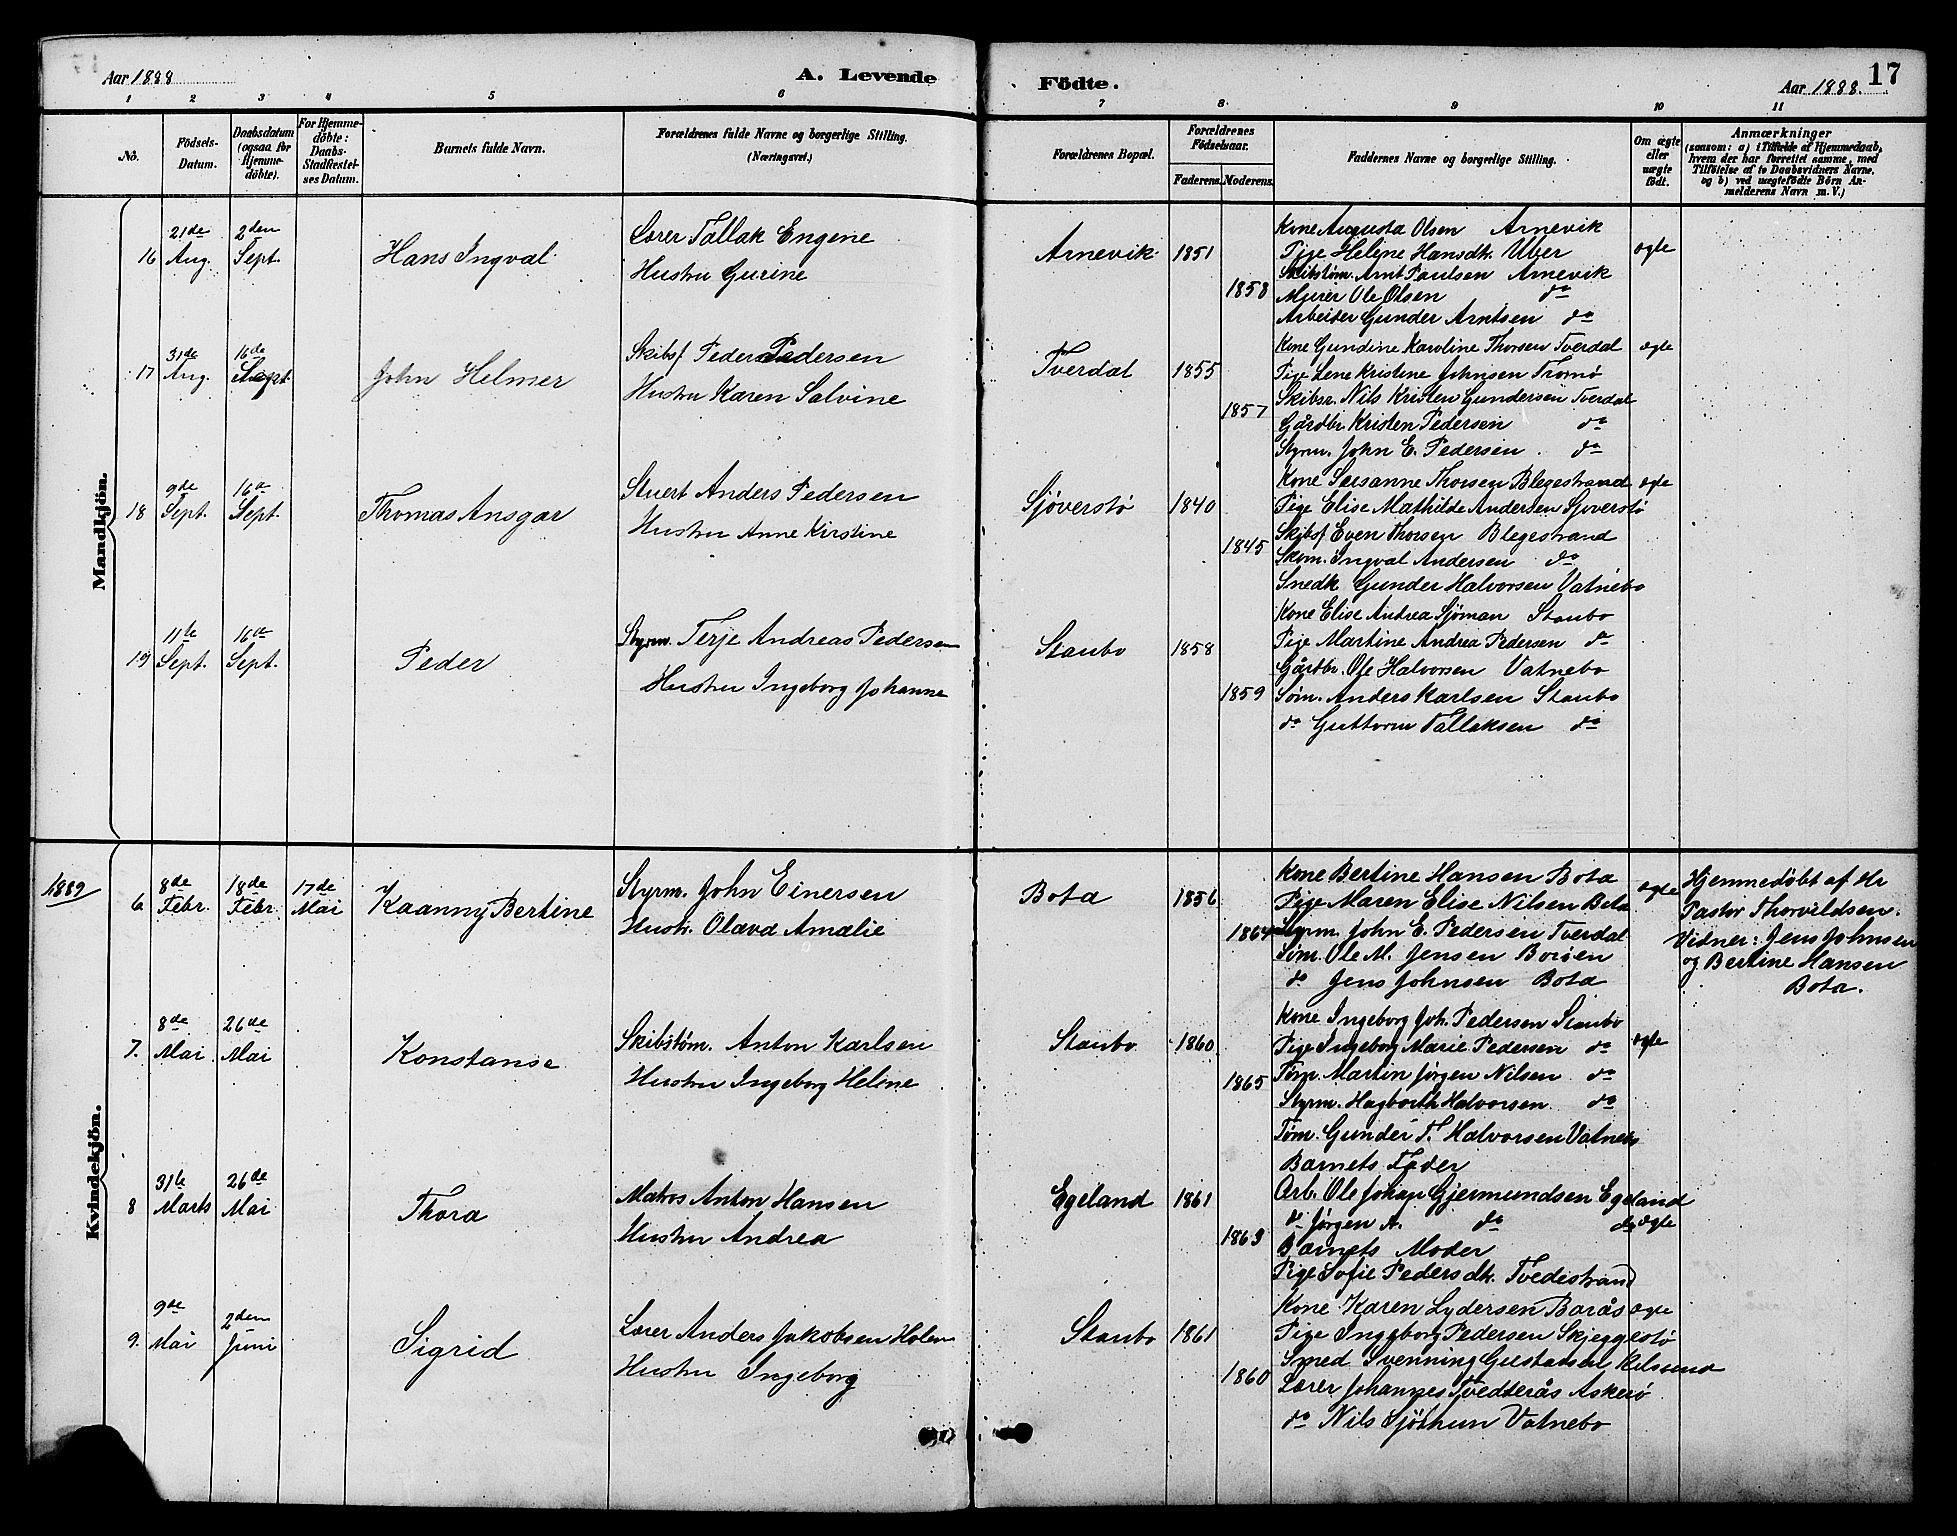 Aar 1888
A. Levende
Födte.
Aar 1888.
17
1 2 3 4 5 6 7 8. 9 10 11
No.
Födsels-Datum.
Daabsdatum (ogsaa for Hjemme-döbte).
For Hjemme-döbte: Daabs-Stadfæstel-ses Datum.
Barnets fulde Navn.
Forældrenes fulde Navne og borgerlige Stilling.
(Næringsvei.)
Forældrenes Bopæl.
Forældrenes Födselsaar.
Faderens. Moderens.
Faddernes Navne og borgerlige Stilling.
Om ægte eller uægte födt.
Anmærkninger
(saasom: a) i Tilfælde af Hjemmedaab,
hvem der har forrettet samme, med
Tilföielse af to Daabsvidners Navne,
og b) ved uægtefödte Börn An-
melderens Navn m. V.)
Mandkjön.
16 21de Aug. 2den Sept. Hans Ingval
Lærer Tallak Engene
Hustru Gurine
Arnevik 1851 1858
Kone Augusta Olsen Arnevik
Pige Helene Hansdtr. Uber
Skibstøm. Arnt Paulsen Arnevik
Murer Ole Olsen do
Arbeider Gunder Arntsen do
ægte
17 31de Aug. 16de Sept. John Helmer
Skibsf. Peder Pedersen
Hustru Karen Salvine
Tverdal 1855 1857
Kone Gundine Karoline Thorsen Tverdal
Pige Lene Kristine Johnsen Tromø
Skibsr. Nils Kristen Gundersen Tverdal
Gårdbr. Kristen Pedersen do
Styrm. John E. Pedersen do
ægte
18 9de Sept. 16de Sept. Thomas Ansgar
Stuert Anders Pedersen
Hustru Anne Kirstine
Sjöverstø 1840 1845
Kone Sersanne Thorsen Blegestrand
Pige Elise Mathilde Andersen Sjöverstø
Skibsf. Even Thorsen Blegestrand
Skom. Ingval Andersen do
Snedk. Gunder Halvorsen Vatnebo
ægte
19 11te Sept. 16de Sept. Peder
Styrm. Terje Andreas Pedersen
Hustru Ingeborg Johanne
Staubo 1858 1859
Kone Elise Andrea Sjöman Staubo
Pige Martine Andrea Pedersen do
Gårdbr. Ole Halvorsen Vatnebo
Søm. Anders Karlsen Staubo
do Guttorm Tallaksen do
1889
Kvindekjön.
6 8de Febr. 18de Febr. 17de Mai Kaanny Bertine
Styrm. John Einersen
Hustr. Olava Amalie
Bota 1856 1864
Kone Bertine Hansen Bota
Pige Maren Elise Nilsen Bota
Styrm. John E. Pedersen Tverdal
Tøm. Ole M. Jensen Borøen
do Jens Johnsen Bota
ægte
Hjemmedøbt af Hr
Pastor Thorvildsen.
Vidner: Jens Johnsen
og Bertine Hansen
Bota.
7. 8de Mai 26de Mai Konstanse
Skibstøm. Anton Karlsen
Hustru Ingeborg Helene
Staubo 1860 1865
Kone Ingeborg Joh. Pedersen Staubo
Pige Ingeborg Marie Pedersen do
Tøm. Martin Jørgen Nilsen do
Styrm. Hagbarth Halvorsen do
Tøm. Gunder T. Halvorsen Vatnebo
ægte
8 31te Marts 26de Mai Thora
Matros Anton Hansen
Hustru Andrea
Egeland 1861 1863
Barnets Fader
Arb. Ole Johan Gjermundsen Egeland
do Jørgen A. do do
Barnets Moder
Pige Sofie Pedersdtr. Tvedestrand
ægte
9. 9de Mai 2den Juni Sigrid
Lærer Anders Jakobsen Holm
Hustru Ingeborg
Staubo 1861 1860
Kone Karen Lydersen Borås
Pige Ingeborg Pedersen Skjeggestø
Smed Svenning Gustavsen Kilsund
Lærer Johannes Tvedterås Askerø
do Nils Sjöthun Vatnebo
ægte